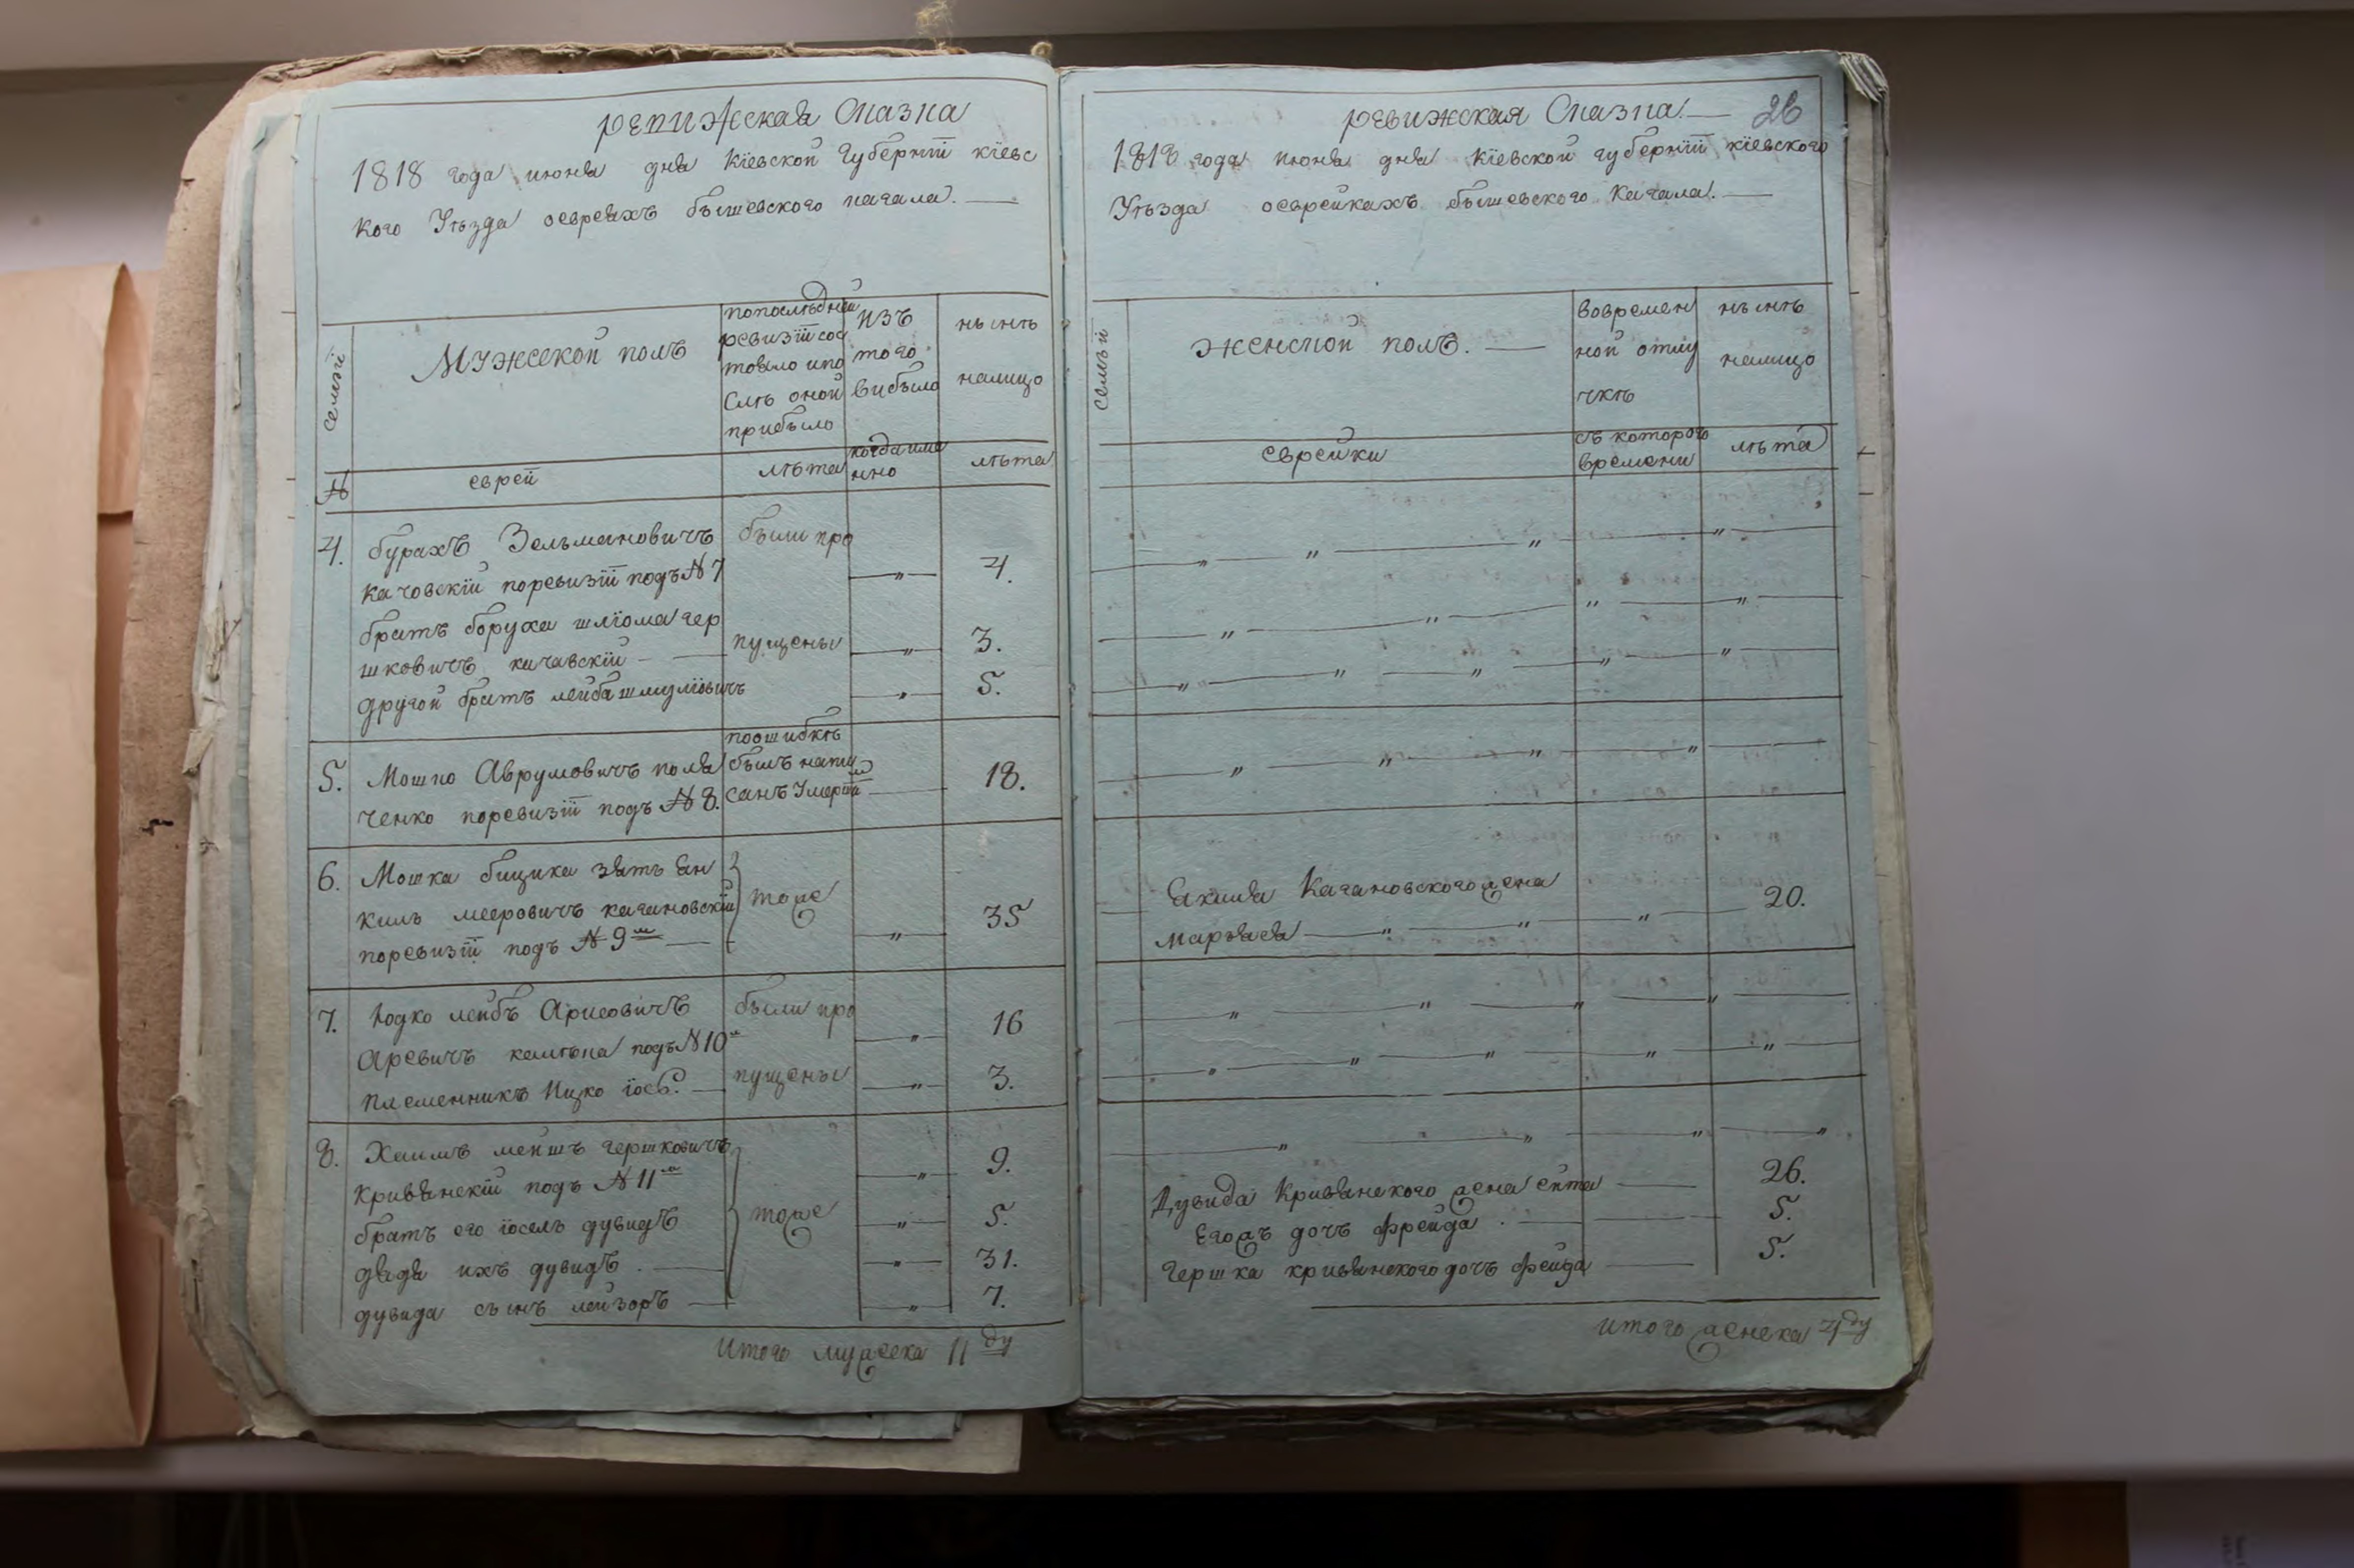 ревижская Сказка
1818 года июня дня Кіевской Губерніи кіевс
кого Уѣзда оевреяхъ бышевского кагала.
семьи
Мужеской полъ
попослѣдней
ревизіи сос
тояло ипо
слѣ оной
прибыло
изъ
того
вибыло
нынѣ
налицо
№
еврей
лѣта
когда име
нно
лѣта
4. бурахъ Зельмановичъ были про
качовскій поревизіи подъ №7 4.
братъ боруха шліома гер
шковичъ качавскій пущены 3.
другой братъ лейба шмуліовичъ 5.
поошибкѣ
5. Мошко Аврумовичъ поля былъ напи
ченко поревизіи подъ №8. санъ Умерш 18.
6. Мошка бицика зять Ян
киль мееровичъ качановскій тоже 35
поревизіи подъ №9м
7. Юдко лейбъ Ариовичъ были про 16
Аревичъ подъ №10м
племенникъ Ицко іос. пущены 3.
8. Хаимъ мейшъ гершковичъ 9.
Кривянскій подъ №11м
братъ его іосель дувидъ тоже 5.
дядя ихъ дувидъ 31.
дувида сынъ лейзоръ 7.
Итого мужеска 11 ду
ревижская Сказка. 26
1818 года июня дня Кіевской губерніи кіевского
Уѣзда оеврейкахъ бышевского Кагала.
семьи
женской полъ.
вовремен
ной отлу
чкѣ
нынѣ
налицо
еврейки
съ которого
времени
лѣта
Якиля Кагановского жена
20.
Дувида Кривянского жена 26.
Егожъ дочъ фрейда. 5.
Гершка кривянского дочъ фейга 5.
итого женска 4 ду